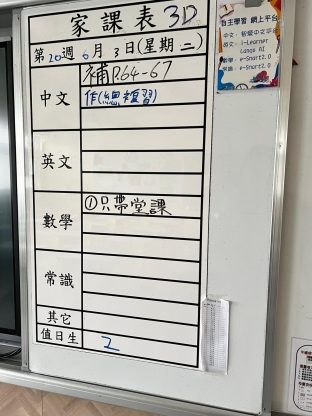 家課表 3D
第20週6月3日(星期二)
補P.64-67
中文
作(總複習)
英文
數學
①只帶堂課
常識
其它
值日生
2
自主學習 網上平台
中文:
英文: i-Learner
數學: e-Smart2.0
常識: e-Smart2.0